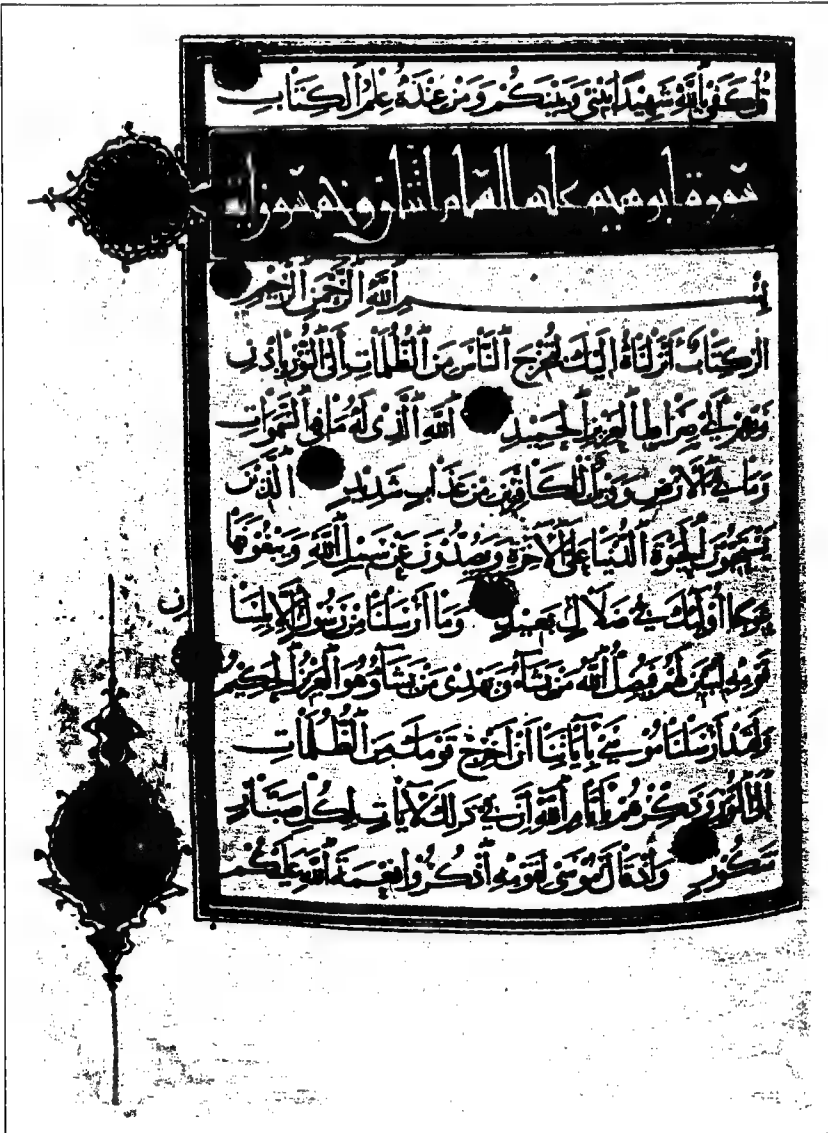 قُلْ كَفَىٰ بِٱللَّهِ شَهِيدًا بَيْنِي وَبَيْنَكُمْ وَمَنْ عِنْدَهُ عِلْمُ ٱلْكِتَابِ
سورة ابرهيم عليه السلام اثنان وخمسون اية
بِسْمِ ٱللَّهِ ٱلرَّحْمَٰنِ ٱلرَّحِيمِ
الر كِتَابٌ أَنْزَلْنَاهُ إِلَيْكَ لِتُخْرِجَ ٱلنَّاسَ مِنَ ٱلظُّلُمَاتِ إِلَى ٱلنُّورِ بِإِذْنِ
رَبِّهِمْ إِلَىٰ صِرَاطِ ٱلْعَزِيزِ ٱلْحَمِيدِ ٱللَّهِ ٱلَّذِي لَهُ مَا فِي ٱلسَّمَوَاتِ
وَمَا فِي ٱلْأَرْضِ وَوَيْلٌ لِلْكَافِرِينَ مِنْ عَذَابٍ شَدِيدٍ ٱلَّذِينَ
يَسْتَحِبُّونَ ٱلْحَيَوٰةَ ٱلدُّنْيَا عَلَى ٱلْآخِرَةِ وَيَصُدُّونَ عَنْ سَبِيلِ ٱللَّهِ وَيَبْغُونَهَا
عِوَجًا أُولَٰئِكَ فِي ضَلَالٍ بَعِيدٍ وَمَا أَرْسَلْنَا مِنْ رَسُولٍ إِلَّا بِلِسَانِ
قَوْمِهِ لِيُبَيِّنَ لَهُمْ فَيُضِلُّ ٱللَّهُ مَنْ يَشَاءُ وَيَهْدِي مَنْ يَشَاءُ وَهُوَ ٱلْعَزِيزُ ٱلْحَكِيمُ
وَلَقَدْ أَرْسَلْنَا مُوسَىٰ بِآيَاتِنَا أَنْ أَخْرِجْ قَوْمَكَ مِنَ ٱلظُّلُمَاتِ
إِلَى ٱلنُّورِ وَذَكِّرْهُمْ بِأَيَّامِ ٱللَّهِ إِنَّ فِي ذَٰلِكَ لَآيَاتٍ لِكُلِّ صَبَّارٍ
شَكُورٍ وَإِذْ قَالَ مُوسَىٰ لِقَوْمِهِ ٱذْكُرُوا نِعْمَةَ ٱللَّهِ عَلَيْكُمْ